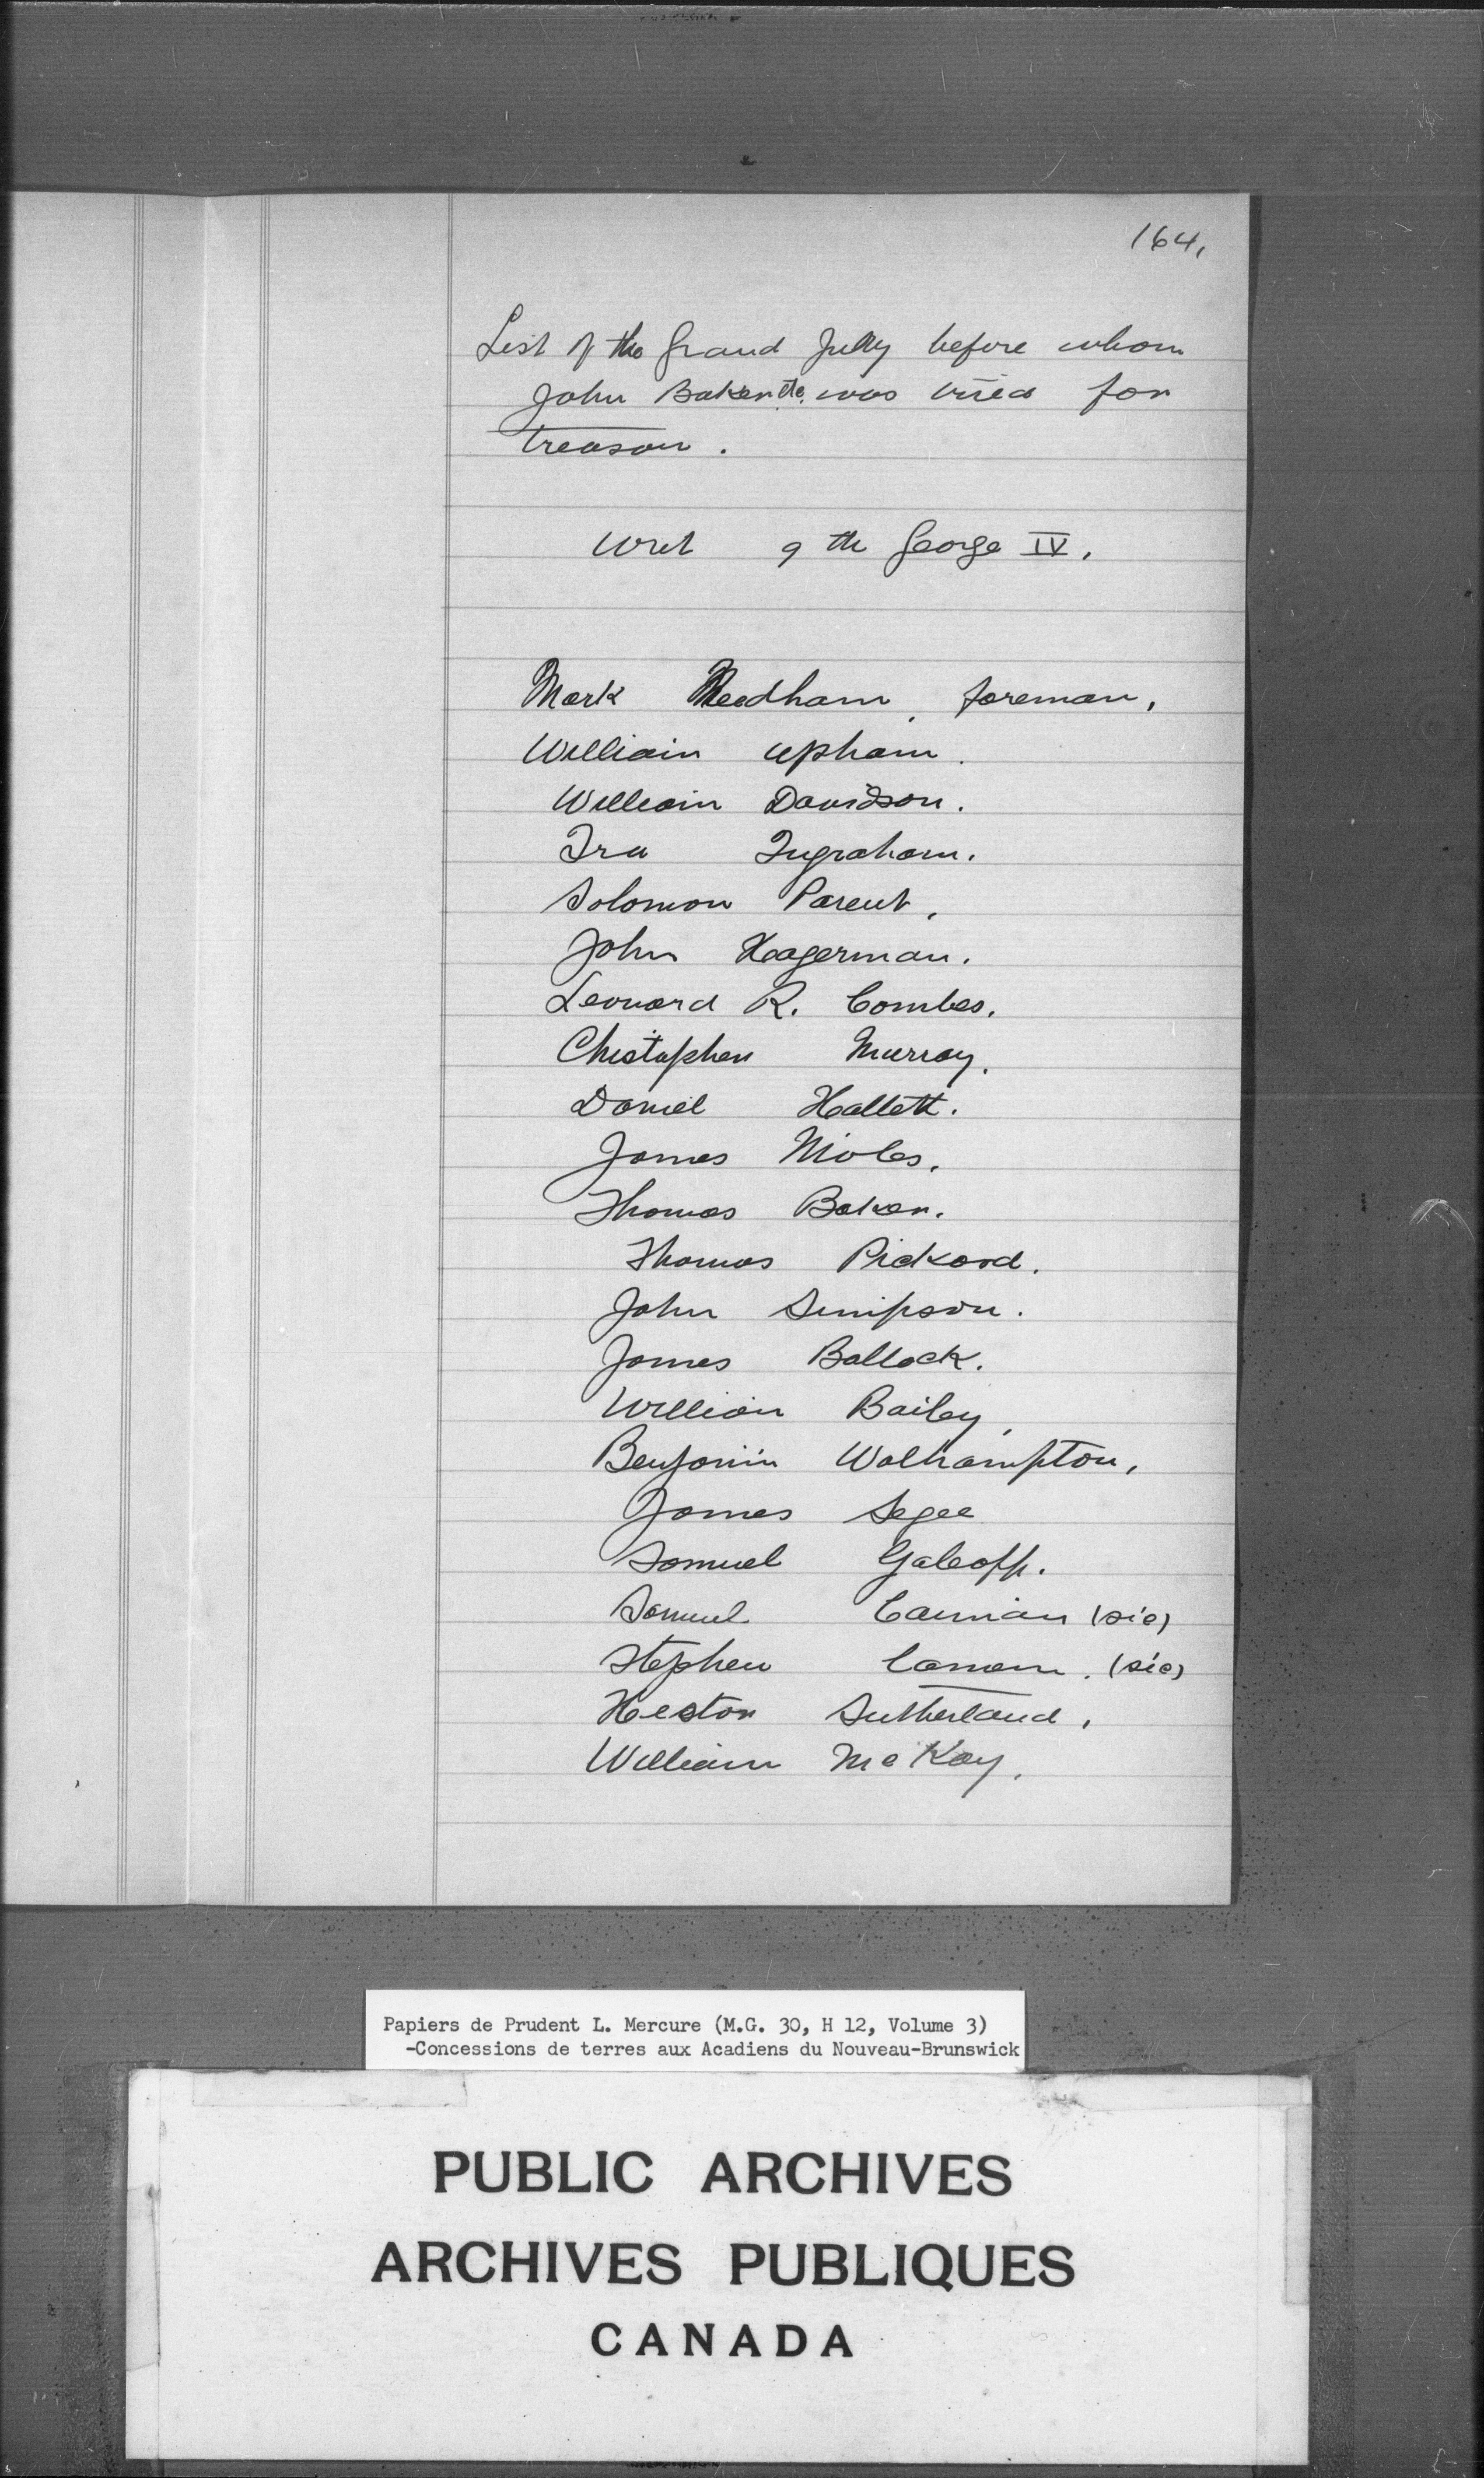 164,
List of the Grand Jury before whom
John Baker etc. was tried for
treason.
Writ 9 th George IV.
Mark Needham, foreman,
William Upham.
William Davidson.
Ira Ingraham.
Solomon Parent,
John Hagerman.
Leonard R. Combes.
Chistopher Murray.
Daniel Hallett.
James Nioles.
Thomas Baker.
Thomas Pickard.
John Simpson.
James Ballock.
William Bailey,
Benjamin Wolhampton,
James Segee
Samuel
Samuel (sic)
Stephen (sic)
Hector Sutherland,
William McKay,
Papiers de Prudent L. Mercure (M.G. 30, H 12, Volume 3)
-Concessions de terres aux Acadiens du Nouveau-Brunswick
PUBLIC ARCHIVES
ARCHIVES PUBLIQUES
CANADA